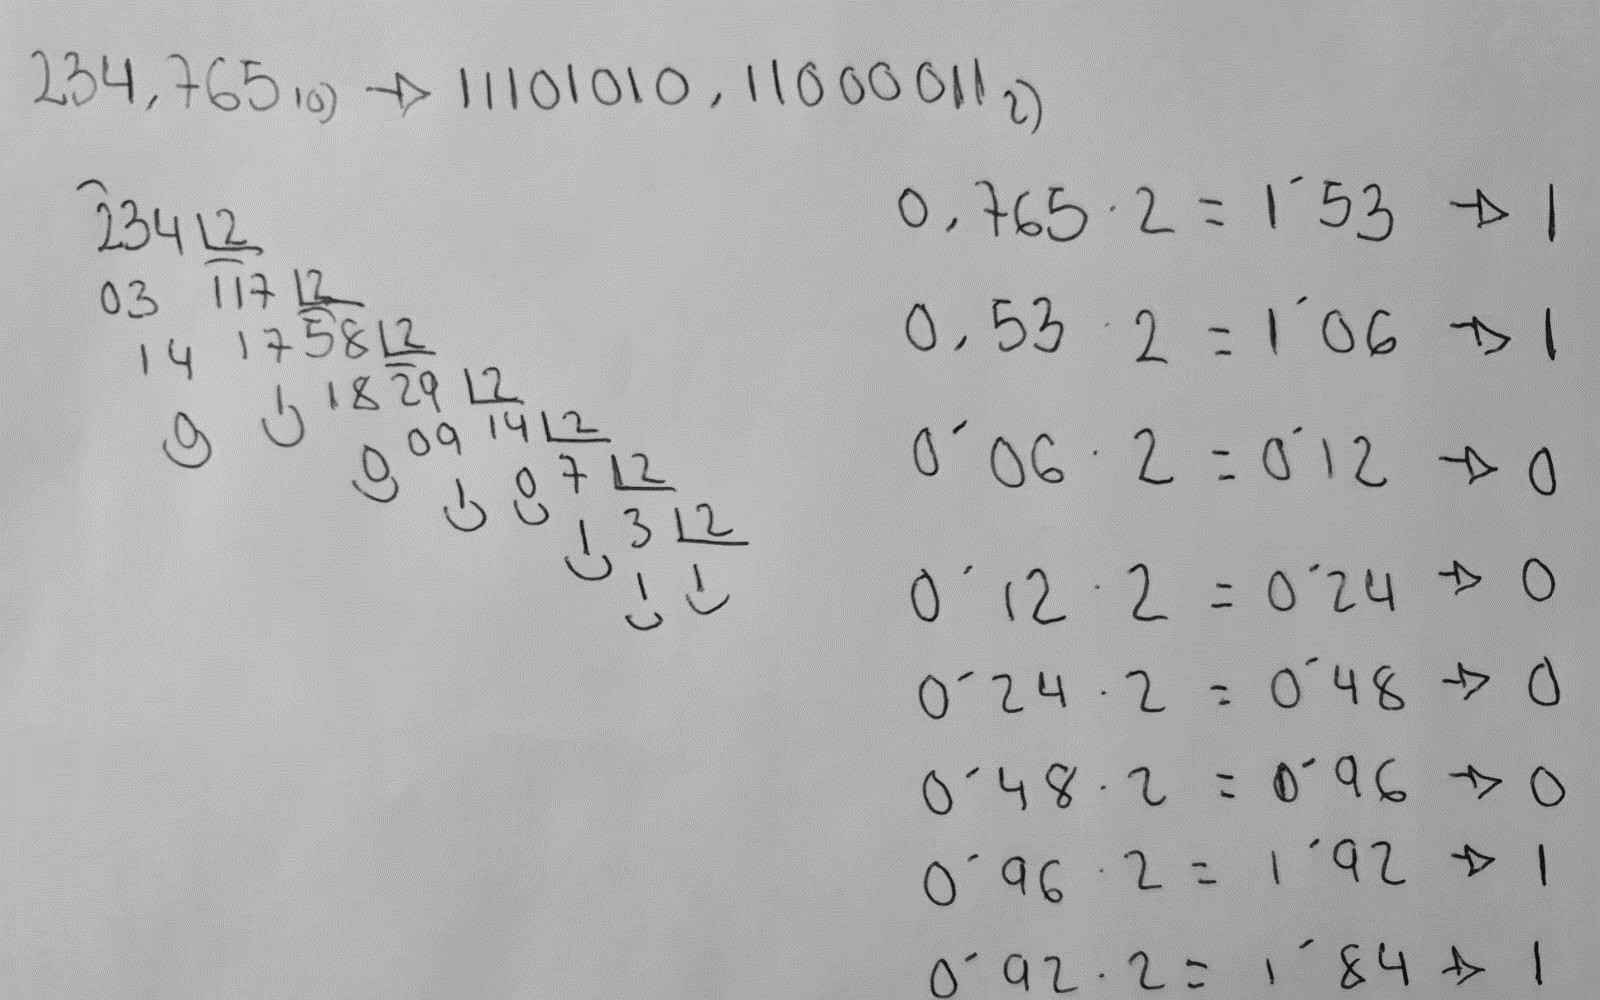 234,765 10) → 11101010,11000011 2)
234 |2
03 117 |2
14 17 58 |2
0 1 18 29 |2
0 09 14 |2
1 0 7 |2
1 3 |2
1 1
0,765 · 2 = 1´53 → 1
0,53 · 2 = 1´06 → 1
0´06 · 2 = 0´12 → 0
0´12 · 2 = 0´24 → 0
0´24 · 2 = 0´48 → 0
0´48 · 2 = 0´96 → 0
0´96 · 2 = 1´92 → 1
0´92 · 2 = 1´84 → 1